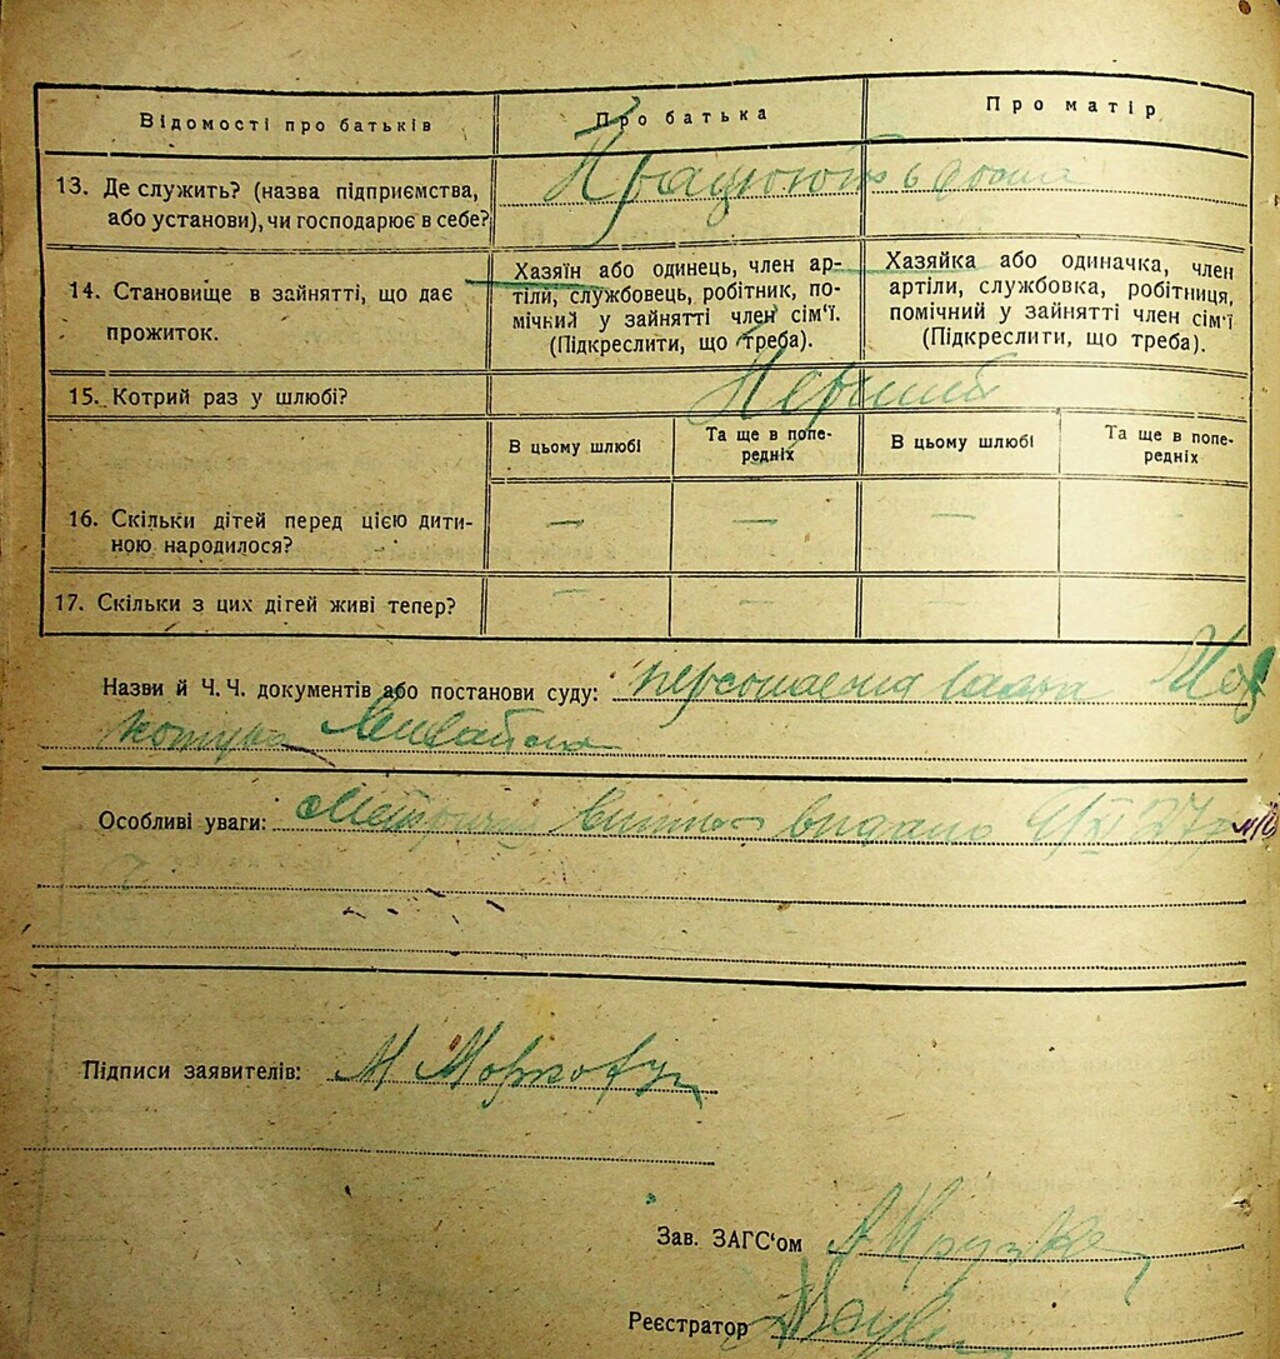 Відомості про батьків
Про батька
Про матір
13. Де служить? (назва підприємства,
або установи), чи господарює в себе?
Працюють в дома
14. Становище в зайнятті, що дає
прожиток.
Хазяїн або одинець, член ар-
тіли, службовець, робітник, по-
мічний у зайнятті член сім'ї.
(Підкреслити, що треба).
Хазяйка або одиначка, член
артіли, службовка, робітниця,
помічний у зайнятті член сім'ї
(Підкреслити, що треба).
15. Котрий раз у шлюбі?
Перший
В цьому шлюбі
Та ще в попе-
редніх
В цьому шлюбі
Та ще в попе-
редніх
16. Скільки дітей перед цією дити-
ною народилося?
— — —
17. Скільки з цих дігей живі тепер?
— — —
Назви й Ч. Ч. документів або постанови суду: персональна
Особливі уваги: Метричний видано 9/XI 27р
Підписи заявителів: М Моркотун
Зав. ЗАГС'ом
Реєстратор